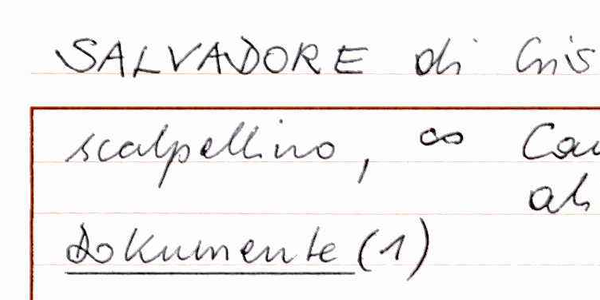 SALVADORE di Cris
scalpellino, ∞ Cau
als
Dokumente (1)